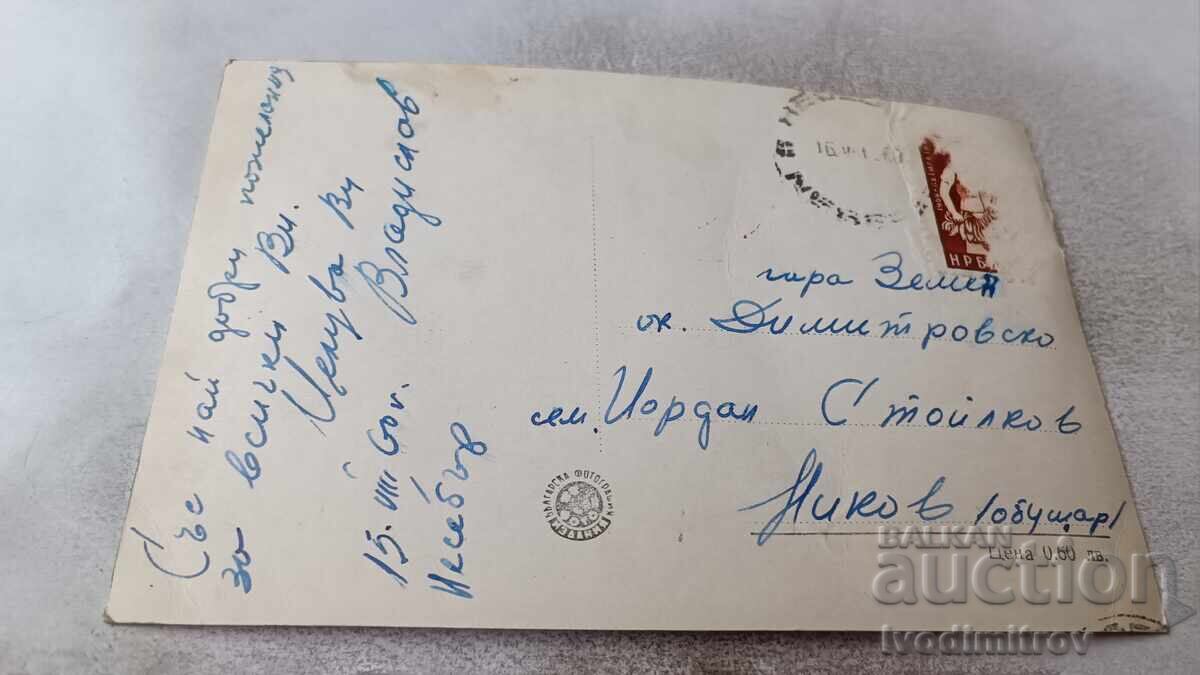 Със най добри пожелания
за всички Ви.
Целува Ви
Владислов
15. VIII 60 г.
Несебър
16.
НРБ
гара Земен
ок. Димитровско
сем. Йордан Стоилков
Ников /обущар/
БЪЛГАРСКА ФОТОГРАФИЯ
Цена 0.60 лв.
BALKAN
auction
Ivodimitrov